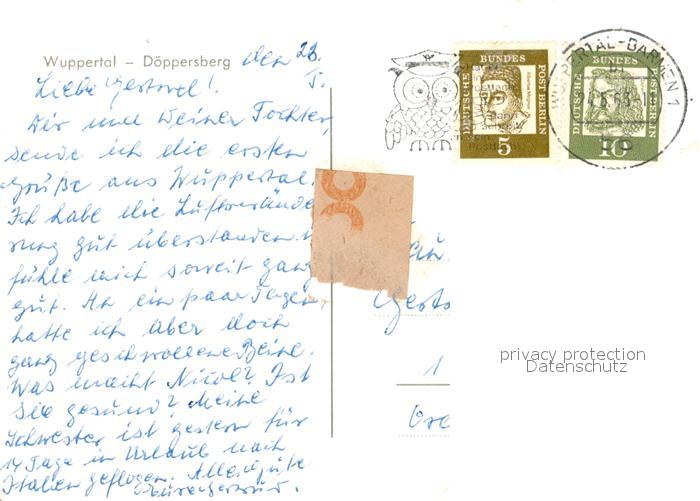 Wuppertal – Döppersberg
den 28.
5.
Liebe
Dir und Deiner Tochter,
sende ich die ersten
Grüße aus Wuppertal.
Ich habe die Luftverände
rung gut überstanden. u
fühle mich soweit ganz
gut. An ein paar Tagen
hatte ich aber doch
ganz geschwollene Beine.
Was macht Nicol? Ist
sie gesund? Meine
Schwester ist gestern für
14 Tage in Urlaub nach
Italien geflogen. Alles Gute
DEUTSCHE BUNDES POST BERLIN
5
DEUTSCHE BUNDES POST BERLIN
10
WUPPERTAL-BARMEN 1
1
privacy protection
Datenschutz